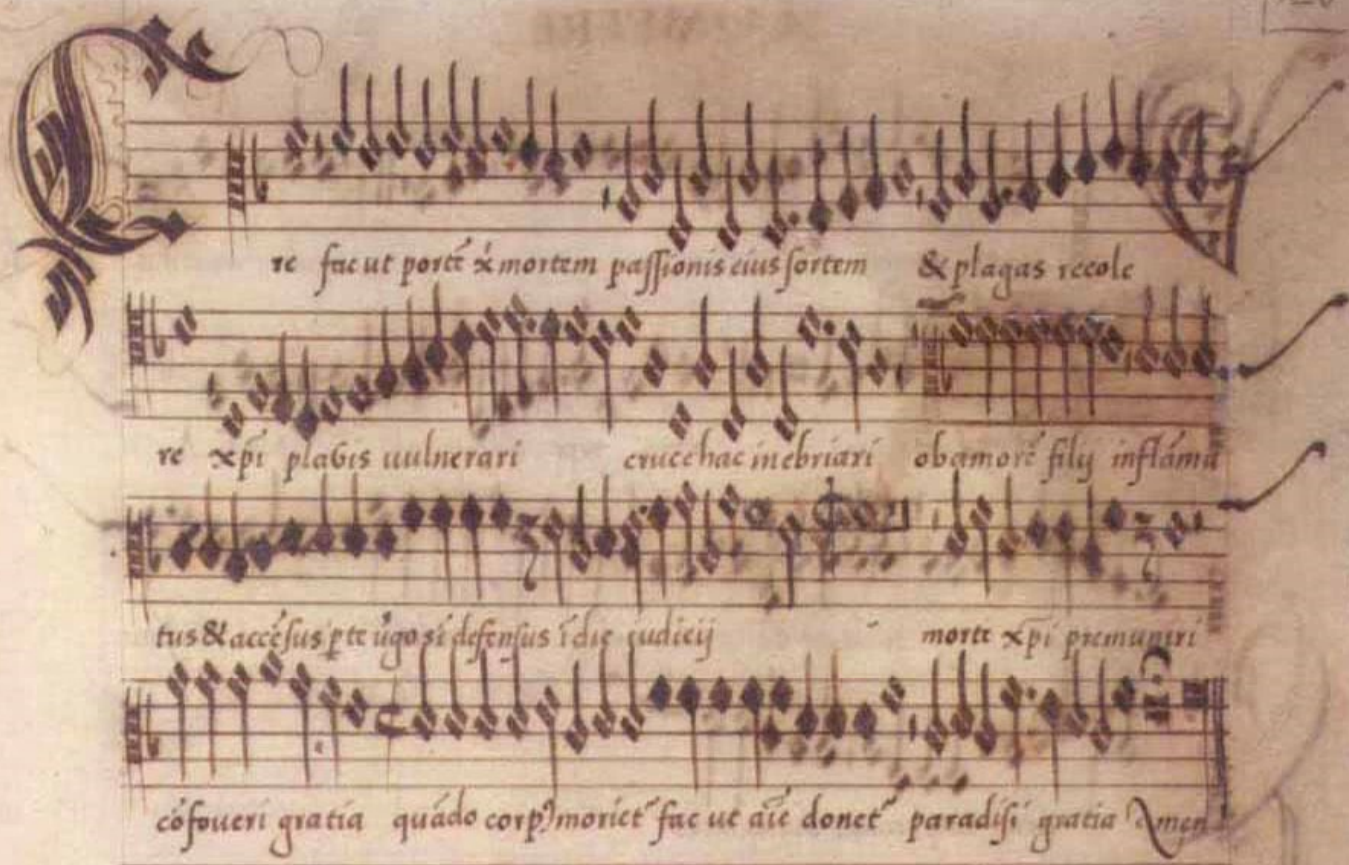 re fac ut portē x̄ mortem passionis eius sortem & plagas recole
re xp̄i plagis uulnerari cruce hac inebriari ob amorē filij inflāma
tus & accēsus p te ūgo si defensus ī die iudicij morte xp̄i premuniri
cōfoueri gratia quādo corp9 moriet̃ fac ut aīe donet̃ paradisi gratia Amen